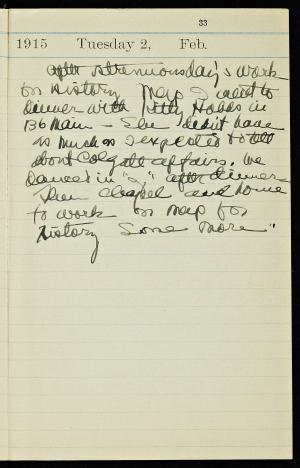 33
1915 Tuesday 2, Feb.
after strenuous day's work
on History Map I went to
dinner with Kitty Hobbs in
136 Main - She didn't have
as much as I expected to tell
about Colgate affairs. We
danced in "J" after dinner
Then chapel and home
to work on map for
history some more"